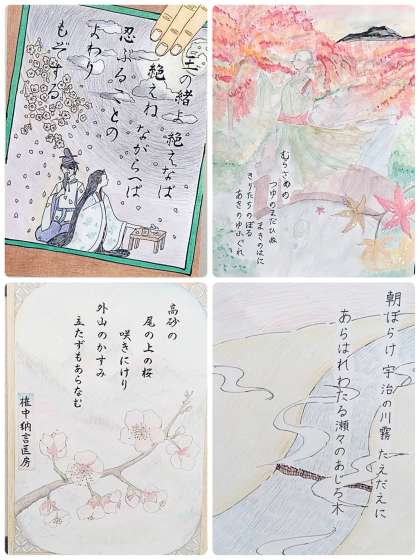 玉の緒よ絶えなば
絶えね ながらへば
忍ぶることの
よわり
もぞする
むらさめの
つゆのまだひぬ
まきのはに
きりたちのぼる
あきのゆふぐれ
高砂の
尾の上の桜
咲きにけり
外山のかすみ
立たずもあらなむ
権中納言匡房
朝ぼらけ 宇治の川霧 たえだえに
あらはれわたる 瀬々のあじろ木